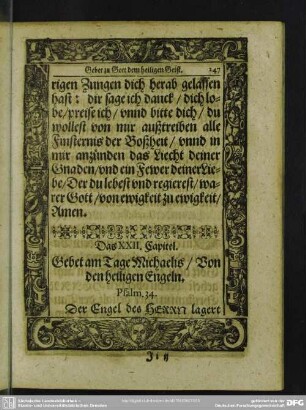 Gebet zu Gott dem heiligen Geist. 247
rigen Zungen dich herab gelassen
hast: dir sage ich danck / dich lo-
be / preise ich / vnnd bitte dich / du
wollest von mir außtreiben alle
Finsternis der Boßheit / vnnd in
mir anzünden das Liecht deiner
Gnaden / vnd ein Fewer deiner Lie-
be / Der du lebest vnd regierest / wa-
rer Gott / von ewigkeit zu ewigkeit /
Amen.
Das XXII, Capitel.
Gebet am Tage Michaelis / Von
den heiligen Engeln.
Psalm, 34.
Der Engel des HERRN lagert